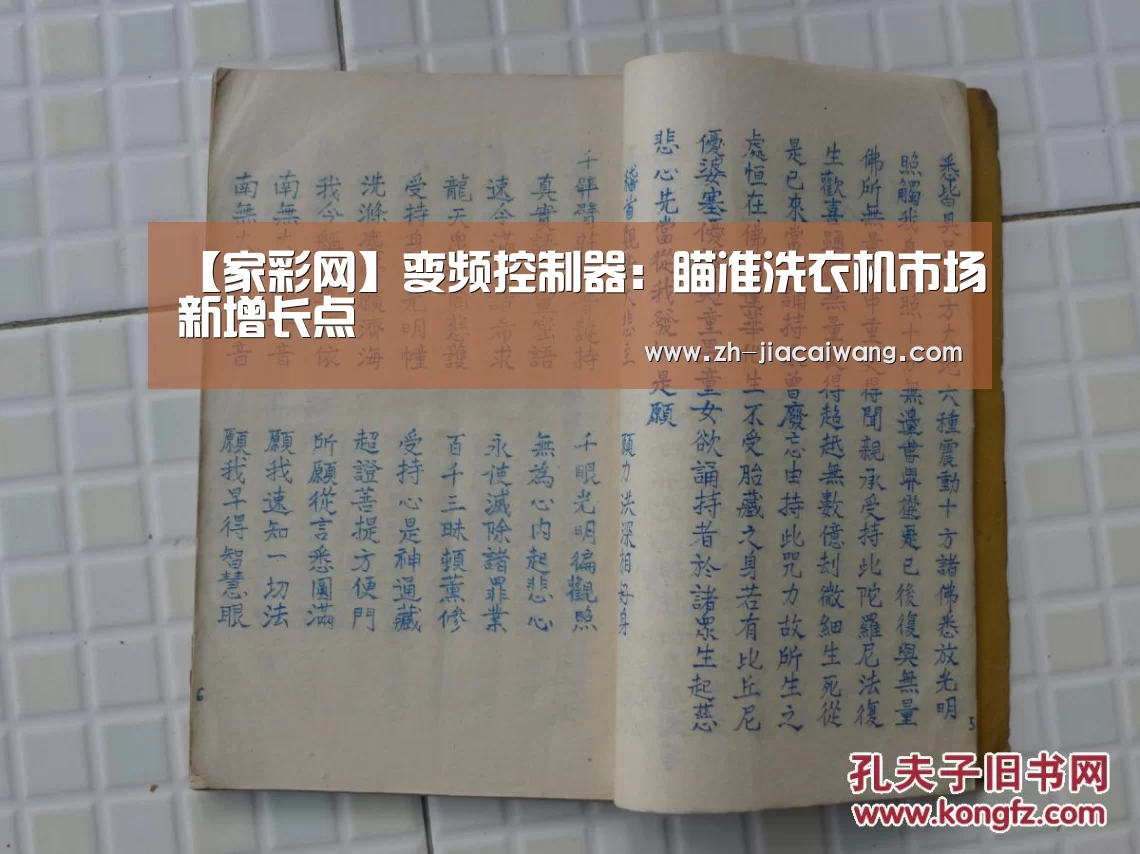 【家彩网】变频控制器：瞄准洗衣机市场
新增长点
www.zh-jiacaiwang.com
照觸我身
悉放光明
六種震動十方諸佛悉放光明
無邊世界從是已後復與無量
佛所無量
得聞親承受持此陀羅尼法復
生歡喜
無量
得超越無數億劫微細生死從
是已來常
誦持
曾廢忘由持此咒力故所生之
處恒在佛
生不受胎藏之身若有比丘尼
優婆塞優
童男童女欲誦持者於諸眾生起慈
悲心先當從我發
是願
願力洪深相好身
千眼光明徧觀照
真實語
密語
無為心內起悲心
速令滿
希求
永使滅除諸罪業
龍天
慈護
百千三昧頼薰修
受持身
光明幢
受持心是神通藏
洗滌塵
願濟海
超證菩提方便門
我今
依
所願從言悉圓滿
南無
音
願我速知一切法
南無
音
願我早得智慧眼
5
6
孔夫子旧书网
www.kongfz.com